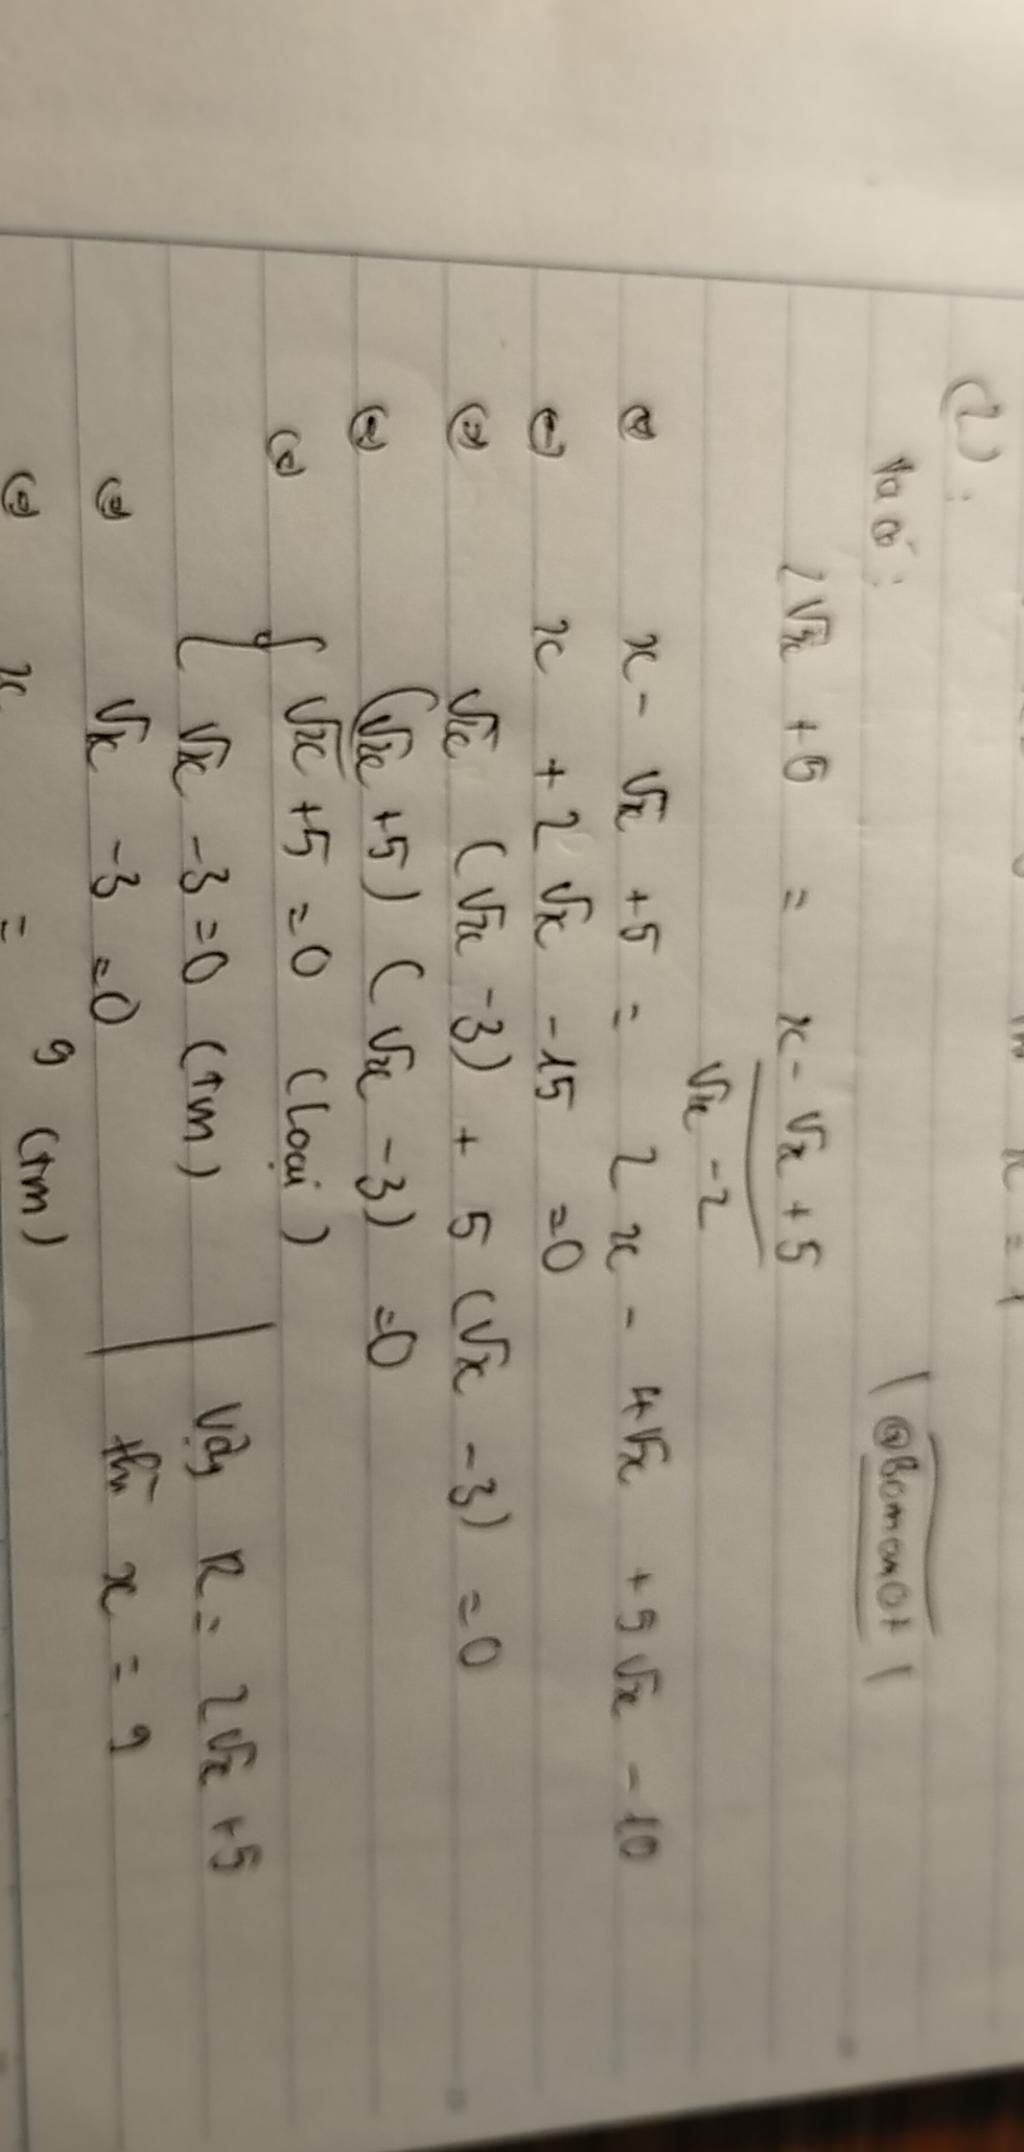 2):
Ta có:
|@Bomanot|
2√x + 5 = (x - √x + 5)/(√x - 2)
⇔ x - √x + 5 = 2x - 4√x + 5√x - 10
⇔ x + 2√x - 15 = 0
⇔ √x (√x - 3) + 5 (√x - 3) = 0
⇔ (√x + 5) (√x - 3) = 0
⇔ { √x + 5 = 0 (loại)
√x - 3 = 0 (tm)
⇔ √x - 3 = 0
⇔ x = 9 (tm)
Vậy R = 2√x + 5
thì x = 9